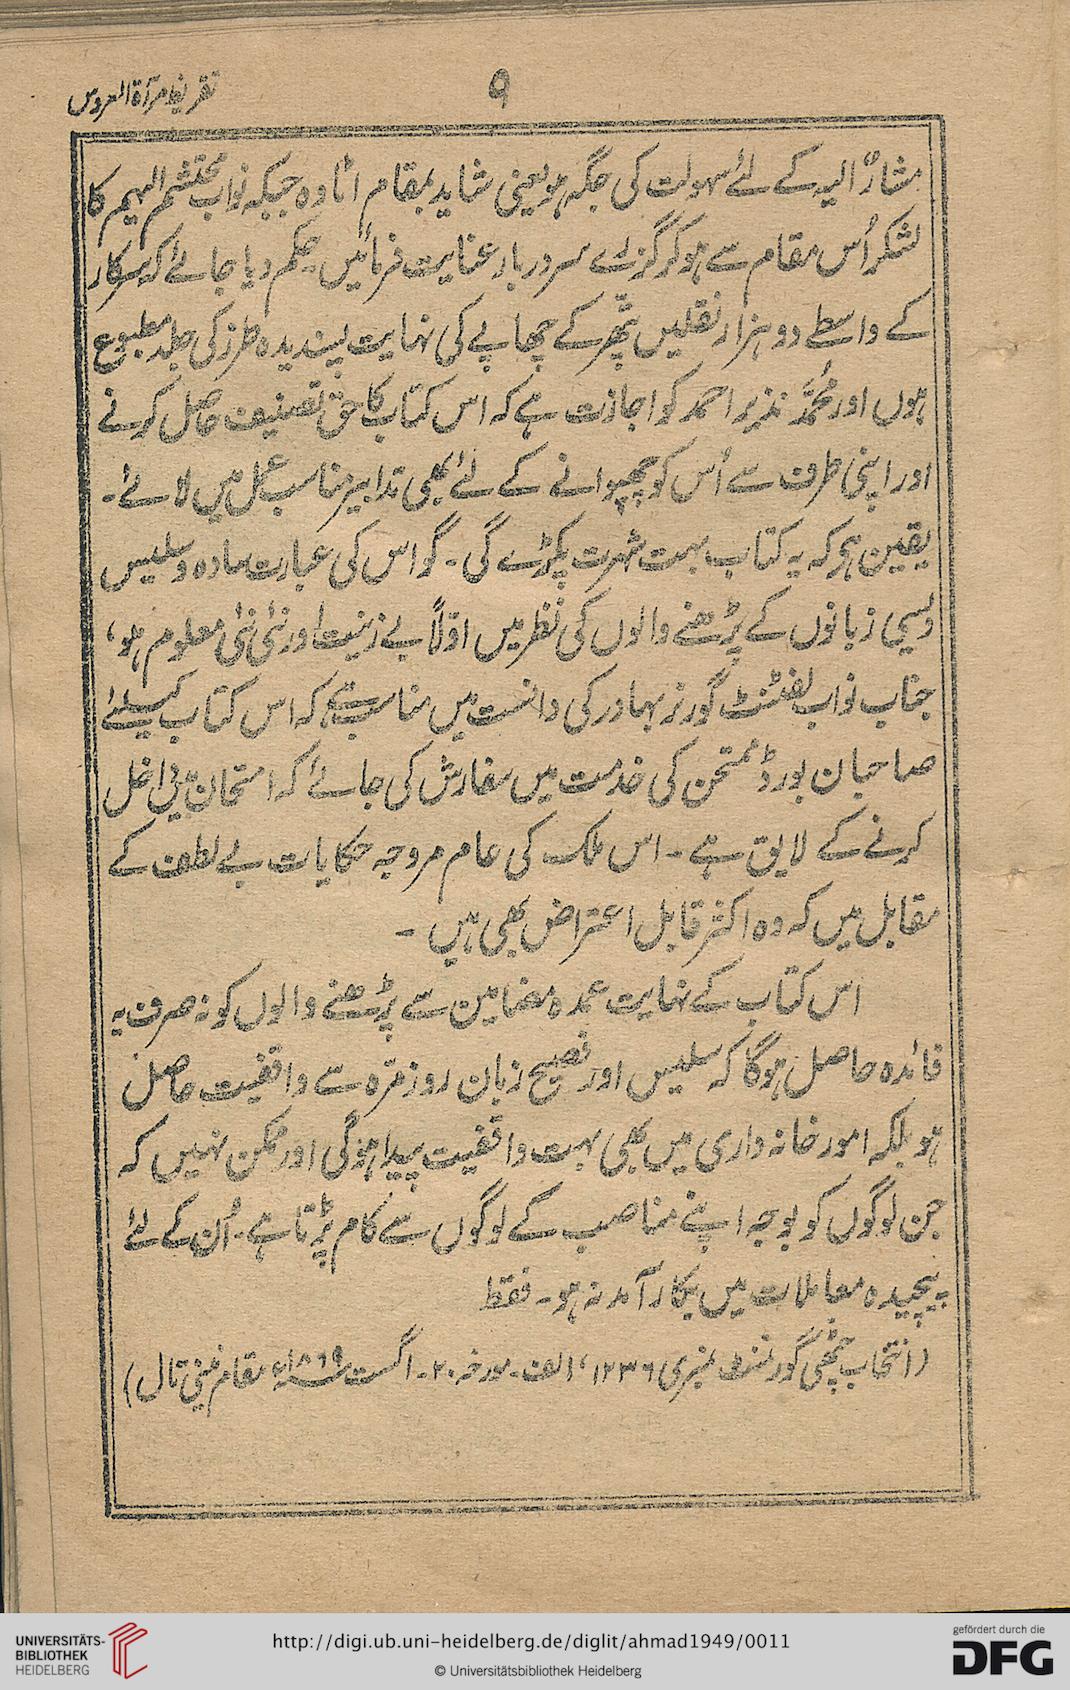 تقریظ مرآۃ العروس
۹
مشارٌ الیہ کے لئے سہولت کی جگہ ہو یعنی شاید بمقام اٹاوہ جبکہ نواب محتشم الیہم کا
لشکر اُس مقام سے ہو کر گزرے سرِ دربار عنایت فرمائیں حکم دیا جائے کہ سرکار
کے واسطے دو ہزار نقلیں پتّھر کے چھاپے کی نہایت پسندیدہ طرز کی جلد مطبوع
ہوں اور محمّد نذیر احمد کو اجازت ہے کہ اس کتاب کا حق تصنیف حاصل کرنے
اور اپنی طرف سے اُس کو چھپوانے کے لئے بھی تدابیر مناسب عمل میں لائے۔
یقین ہو کہ یہ کتاب بہت شہرت پکڑے گی۔ گو اس کی عبارت سادہ و سلیس
دیسی زبانوں کے پڑھنے والوں کی نظر میں اوّلاً بے زینت اور نئی نئی معلوم ہو،
جناب نواب لفٹنٹ گورنر بہادر کی دانست میں مناسب ہے کہ اس کتاب کیلئے
صاحبان بورڈ ممتحن کی خدمت میں سفارش کی جائے کہ امتحان میں داخل
کرنے کے لایق ہے۔ اس ملک کی عام مروجہ حکایات بے لطف کے
مقابل میں کہ وہ اکثر قابل اعتراض بھی ہیں۔
اس کتاب کے نہایت عمدہ مضامین سے پڑھنے والوں کو نہ صرف یہ
فائدہ حاصل ہوگا کہ سلیس اور فصیح زبان روزمرّہ سے واقفیت حاصل
ہو بلکہ امور خانہ داری میں بھی بہت واقفیت پیدا ہوگی اور ممکن نہیں کہ
جن لوگوں کو بوجہ اپنے مناصب کے لوگوں سے کام پڑتا ہے۔ اُن کے لئے
پیچیدہ معاملات میں بکار آمد نہ ہو۔ فقط
(انتخاب چٹھی گورنمنٹ نمبری ۱۲۳۶، الف۔ مورخہ ۲۰۔ اگست ۱۸۶۹ء مقام نینی تال)
UNIVERSITÄTS-
BIBLIOTHEK
HEIDELBERG
http://digi.ub.uni-heidelberg.de/diglit/ahmad1949/0011
© Universitätsbibliothek Heidelberg
gefördert durch die
DFG